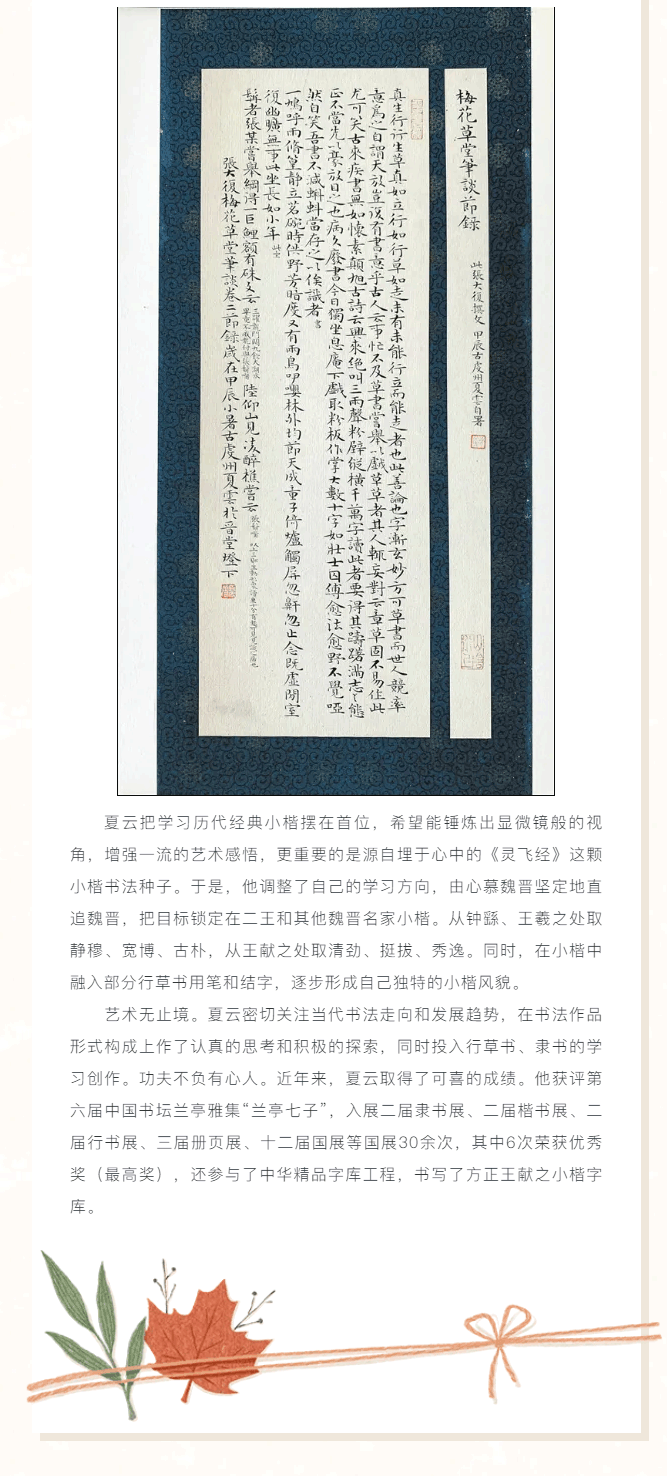 梅花草堂筆談節錄
此張大復撰文 甲辰古虔州夏雲自署
真生行行生草真如立行如行草如走未有未能行立而能走者也此善論也字漸玄妙方可草書而世人競率
意為之自謂天放豈復有書意乎古人云事忙不及草書嘗舉以戲草草者其人輒妄對云章草固不易佳此
尤可笑古來疾書無如懷素顛旭古詩云興來絕叫三兩聲粉壁縱橫千萬字讀此者要得其躊躇滿志之態
正不當先以豪放目之也病久廢書今日獨坐息庵下戲取粉板作掌大數十字如壯士囚縛愈法愈野不覺啞
然自笑吾書不減蝌蚪當存之以俟識者 書
一鳩呼雨脩篁靜立茗碗時供野芳暗度又有兩鳥咿嚶林外均節天成童子倚爐觸屏忽鼾忽止念既虛閒室
復幽曠無事此坐長如小年 此坐
髯者張某嘗舉網得一巨鯉額有硃文云 陸仰山見法醉樵嘗云
張大復梅花草堂筆談卷三節錄歲在甲辰小暑古虔州夏雲於晉堂燈下
夏云把学习历代经典小楷摆在首位，希望能锤炼出显微镜般的视
角，增强一流的艺术感悟，更重要的是源自埋于心中的《灵飞经》这颗
小楷书法种子。于是，他调整了自己的学习方向，由心慕魏晋坚定地直
追魏晋，把目标锁定在二王和其他魏晋名家小楷。从钟繇、王羲之处取
静穆、宽博、古朴，从王献之处取清劲、挺拔、秀逸。同时，在小楷中
融入部分行草书用笔和结字，逐步形成自己独特的小楷风貌。
艺术无止境。夏云密切关注当代书法走向和发展趋势，在书法作品
形式构成上作了认真的思考和积极的探索，同时投入行草书、隶书的学
习创作。功夫不负有心人。近年来，夏云取得了可喜的成绩。他获评第
六届中国书坛兰亭雅集“兰亭七子”，入展二届隶书展、二届楷书展、二
届行书展、三届册页展、十二届国展等国展30余次，其中6次荣获优秀
奖（最高奖），还参与了中华精品字库工程，书写了方正王献之小楷字
库。